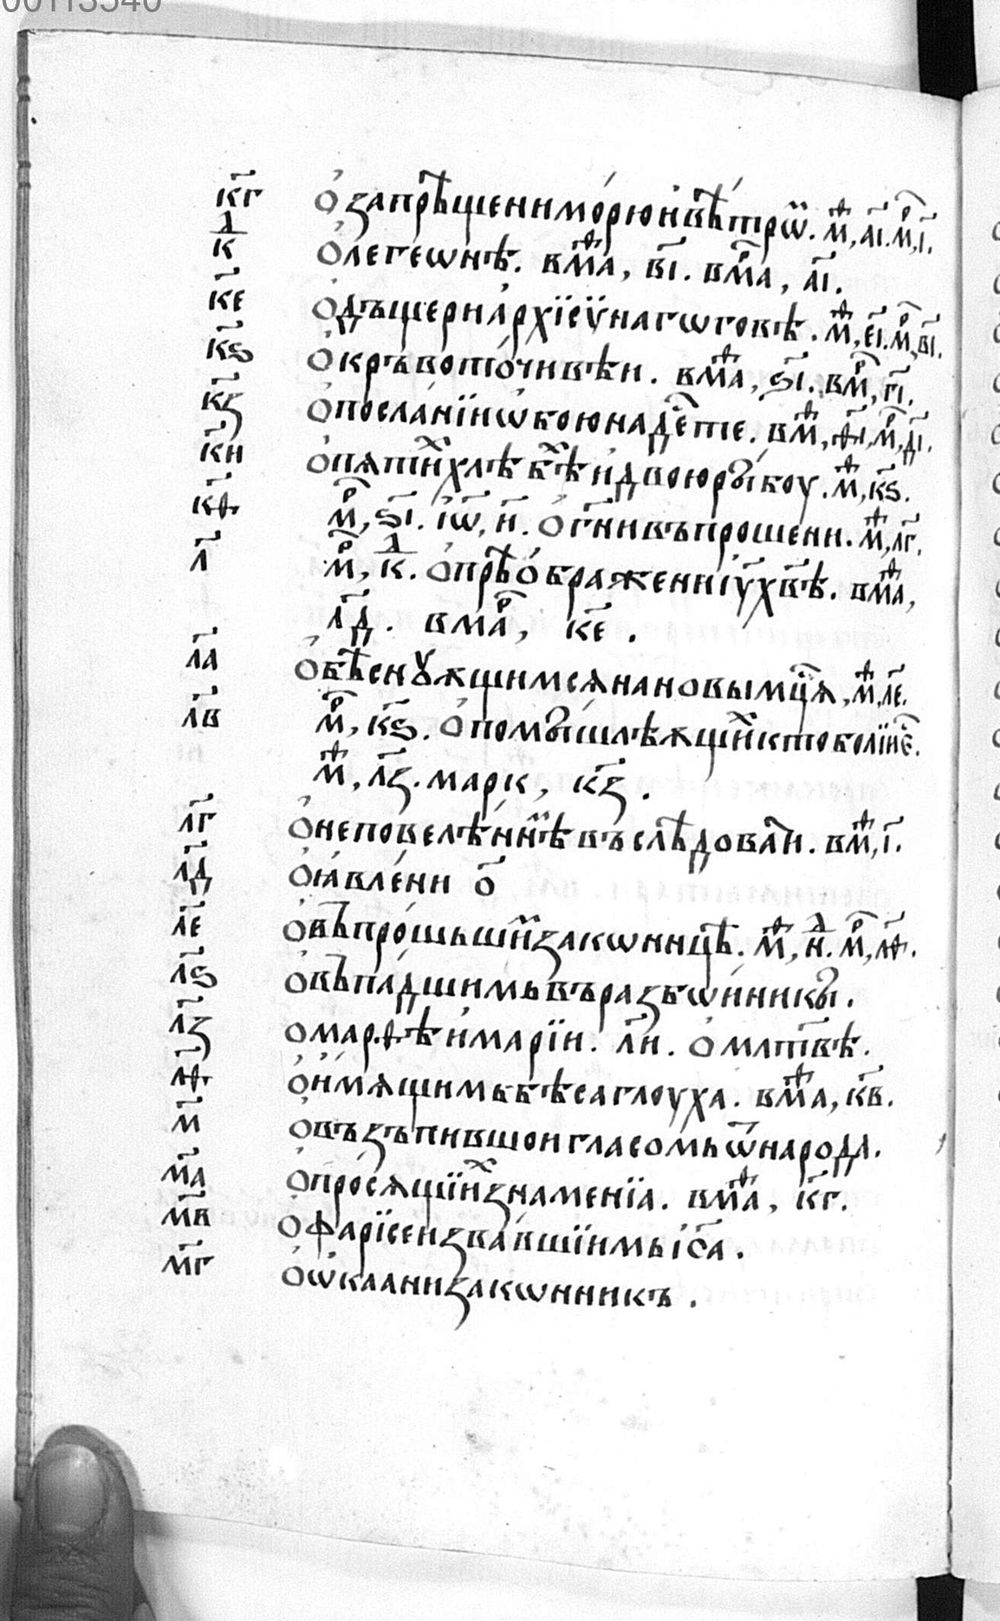 00113540
к҃г О запрѣщени морю и вѣтрѡ҃. м҃ѳ, а҃і. м҃р, і҃.
к҃д О легеѡнѣ. в мѳ҃а, в҃і. в мр҃а, а҃і.
к҃е О дъщери архїсѵнагѡговѣ. м҃ѳ, е҃і. м҃р, в҃і.
к҃ѕ О кръвоточивѣи. в мѳ҃а, ѕ҃і. в м҃р, г҃і.
к҃з О посланїи ѡбоюнадесѧте. в м҃ѳ, ѳ҃і, м҃р, д҃і.
к҃н О пѧтих хлѣбѣх и двою рыбоу. м҃ѳ, к҃ѕ.
к҃ѳ м҃р, ѕ҃і. іѡ҃, н҃. О г҃ни въпрошени. м҃ѳ, л҃г.
л҃ м҃р, к҃д. О прѣображенни і҃ѵ х҃вѣ. в мѳ҃а,
л҃д. в мр҃а, к҃е.
л҃а О бѣснꙋѫщимсѧ на новы мц҃ѧ, м҃ѳ, л҃е.
л҃в м҃р, к҃ѕ. О помышлѣѫщих кто болїи е҃с.
м҃ѳ, л҃з. марк, к҃з.
л҃г О неповелѣннѣм въслѣдовани. в м҃ѳ, і҃.
л҃д О ꙗвлени о҃
л҃е О въпрошьшим законницѣ. м҃ѳ, н҃д. м҃р, л҃ѳ.
л҃ѕ О въпадшимь въ разбѡиникы.
л҃з О марѳѣ и марїи. л҃н. О млт҃вѣ.
л҃ѳ О имѧщимь бѣса глоуха. в мѳ҃а, к҃в.
м҃ О възъпившои гласомь ѿ народа.
м҃а О просѧщїих знаменїа. в мѳ҃а, к҃г.
м҃в О фарїсеи звавшїимь іс҃а.
м҃г О ѡкаани закѡнникъ.